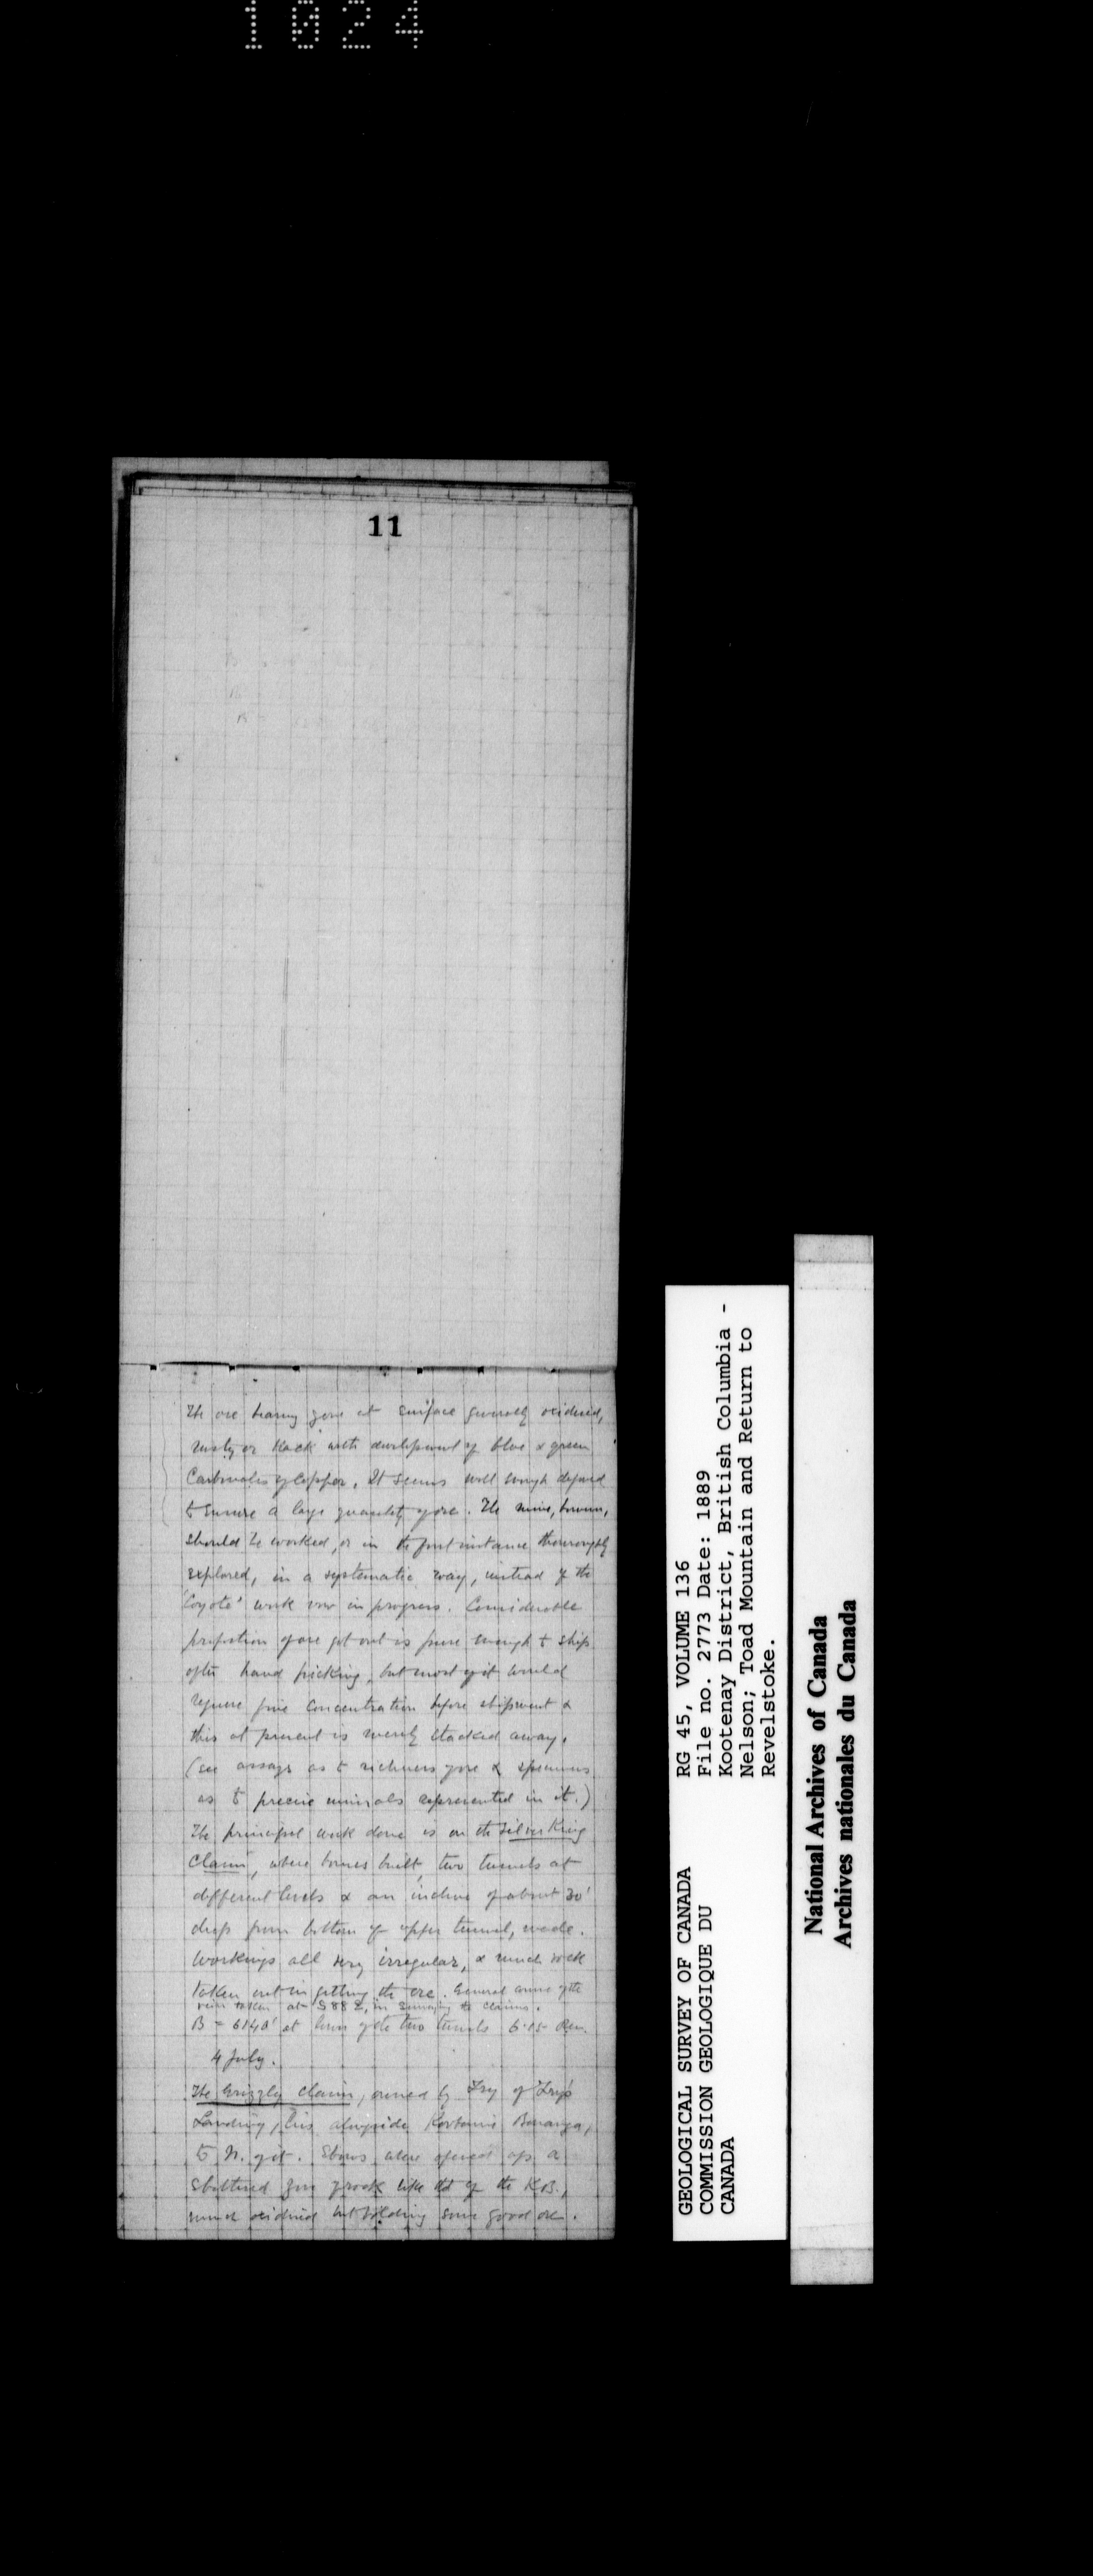 1024
11
The ore bearing zone at surface generally oxidized,
rusty or black with development of blue & green
Carbonates of copper. It seems well enough defined
to ensure a large quantity of ore. The mine, however,
should be worked, or in the first instance thoroughly
explored, in a systematic way, instead of the
'Coyote' work now in progress. Considerable
proportion of ore got out is pure enough to ship
after hand picking, but most of it would
require fine concentration before shipment &
this at present is merely stacked away.
(see assays as to richness of ore & specimens
as to precise minerals represented in it.)
The principal work done is on the Silver King
Claim, where houses built, two tunnels at
different levels & an incline of about 30'
deep from bottom of upper tunnel, made.
Workings all very irregular, & much rock
taken out in getting the ore. General course of the
vein taken at S 88 E, in surveying the claims.
B = 6140' at lower of the two tunnels 6.15
4 July.
The Grizzly Claim, owned by Fry of Fry's
Landing, lies alongside Kootanie Bonanza,
to N. of it. Shows where opened up, a
shattered zone of rock like that of the K.B.,
much oxidized but holding some good ore.
GEOLOGICAL SURVEY OF CANADA
COMMISSION GEOLOGIQUE DU
CANADA
RG 45, VOLUME 136
File no. 2773 Date: 1889
Kootenay District, British Columbia -
Nelson; Toad Mountain and Return to
Revelstoke.
National Archives of Canada
Archives nationales du Canada